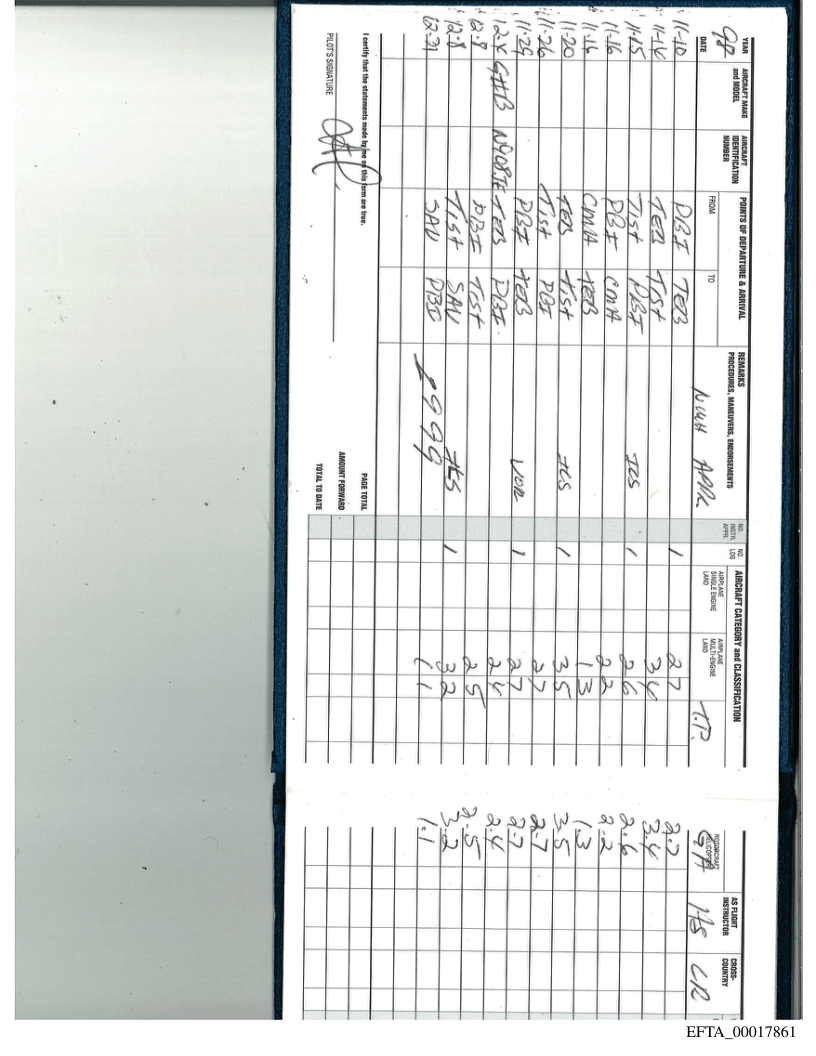 YEAR
98
DATE
AIRCRAFT MAKE and MODEL
AIRCRAFT IDENTIFICATION NUMBER
POINTS OF DEPARTURE & ARRIVAL
FROM
TO
REMARKS
PROCEDURES, MANEUVERS, ENDORSEMENTS
NO. INSTR. APPR.
NO. LDG
AIRCRAFT CATEGORY and CLASSIFICATION
AIRPLANE SINGLE ENGINE LAND
AIRPLANE MULTI-ENGINE LAND
T.P.
ROTORCRAFT HELICOPTER
AS FLIGHT INSTRUCTOR
CROSS-COUNTRY
11-10 PBI TEB APPR 1 2 7 2.7
11-14 TEB TIST 3 4 3.4
11-15 TIST PBI ILS 1 2 6 2.6
11-16 PBI CMH 2 2 2.2
11-16 CMH TEB 1 3 1.3
11-20 TEB TIST ILS 1 3 5 3.5
11-26 TIST PBI 2 7 2.7
11-29 PBI TEB VOR 1 2 7 2.7
12-4 N908JE TEB PBI 2 4 2.4
12-8 PBI TIST 2 5 2.5
12-8 TIST SAV ILS 1 3 2 3.2
12-31 SAV PBI 1 1 1.1
1999
I certify that the statements made by me on this form are true.
PILOT'S SIGNATURE
PAGE TOTAL
AMOUNT FORWARD
TOTAL TO DATE
EFTA_00017861